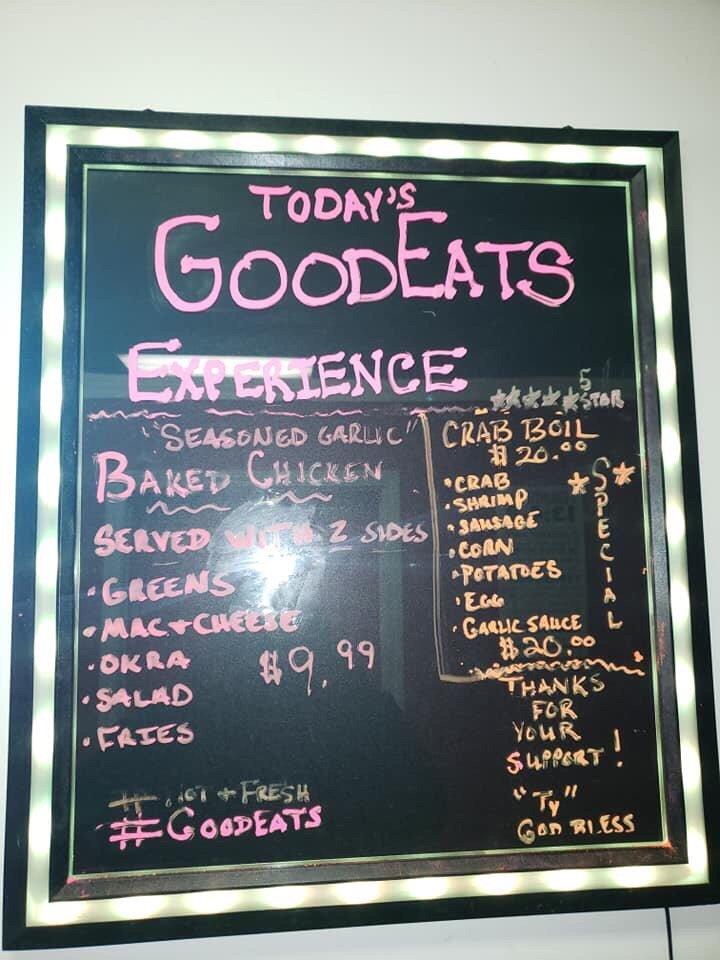 TODAY'S
GOODEATS
EXPERIENCE
"SEASONED GARLIC"
BAKED CHICKEN
SERVED WITH 2 SIDES
• GREENS
• MAC + CHEESE
• OKRA
$9.99
• SALAD
• FRIES
# HOT + FRESH
# GOODEATS
★★★★★ 5 STAR
CRAB BOIL
$20.00
★ SPECIAL ★
• CRAB
• SHRIMP
• SAUSAGE
• CORN
• POTATOES
• EGG
• GARLIC SAUCE
$20.00
THANKS
FOR
YOUR
SUPPORT!
"Ty"
GOD BLESS